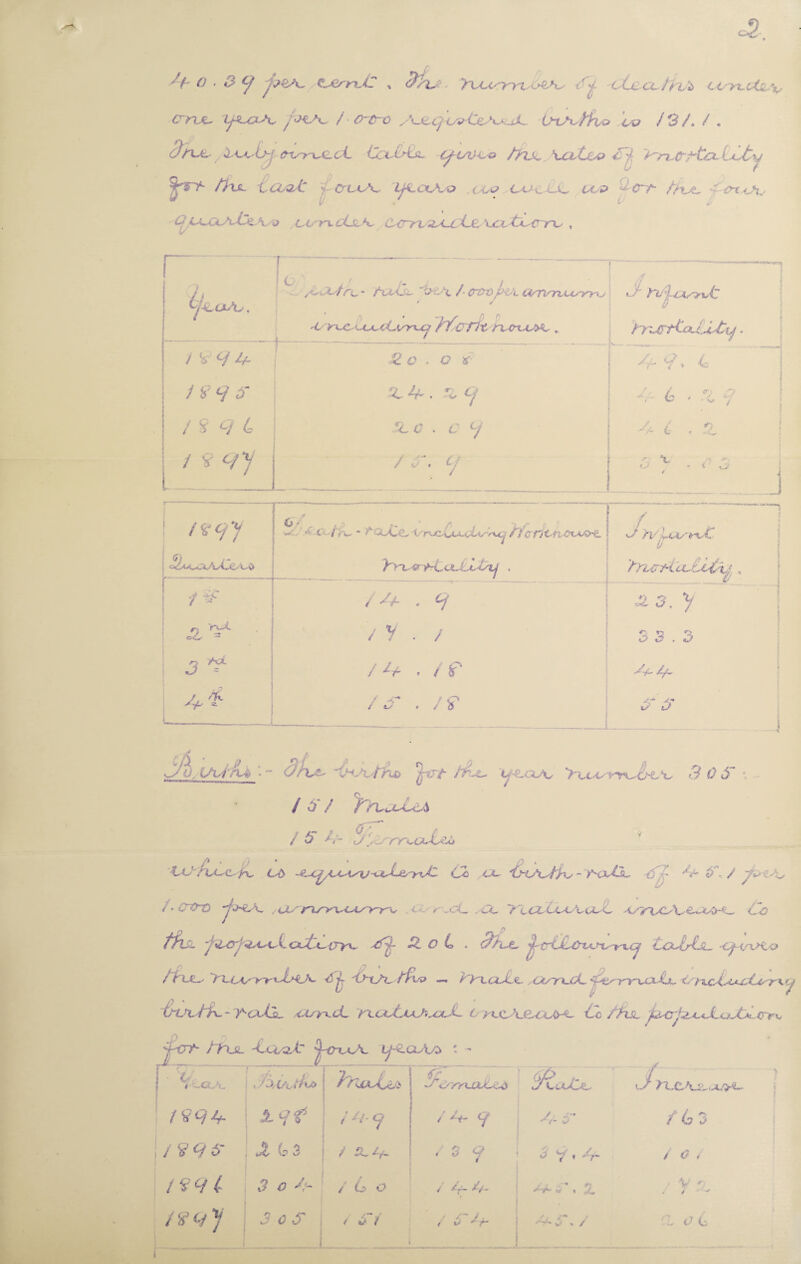 2.
40.39 per cent, The number of deaths under
one year per 1.000 registered births is 131.1.
The subjoined table gives the rates of mortality
for the last four years as well as for the four
quarters under consideration,
Year. Death-rate per 1.000 per annum Infant
including Workhouse. mortality.
1894 20.08 49.6
1895 24.29 46.29
1896 20.09 46.2
1897 15.9 37.03
1897 Death-rate including Workhouse Infant
Quarters mortality. mortality.
1st 14.9 23.7
2nd 17.1 33.3
3rd 14.18 44
4th 15.18 55
Births:- The births for the year number 305:-
151 Males
154 Females
which is equivalent to a birth-rate of 45.1 per
1.000 per annum and a natural increase to
the population of 206. The following table gives
the number of births — male and female including
birth-rate and natural increase to the population
for the last four years:-
Year. Births Males Females Rate Increase
1894 298 149 149 45 163
1895 263 124 139 39.4 101
1896 304 160 144 45.2 172
1897 305 151 154 45.1 206